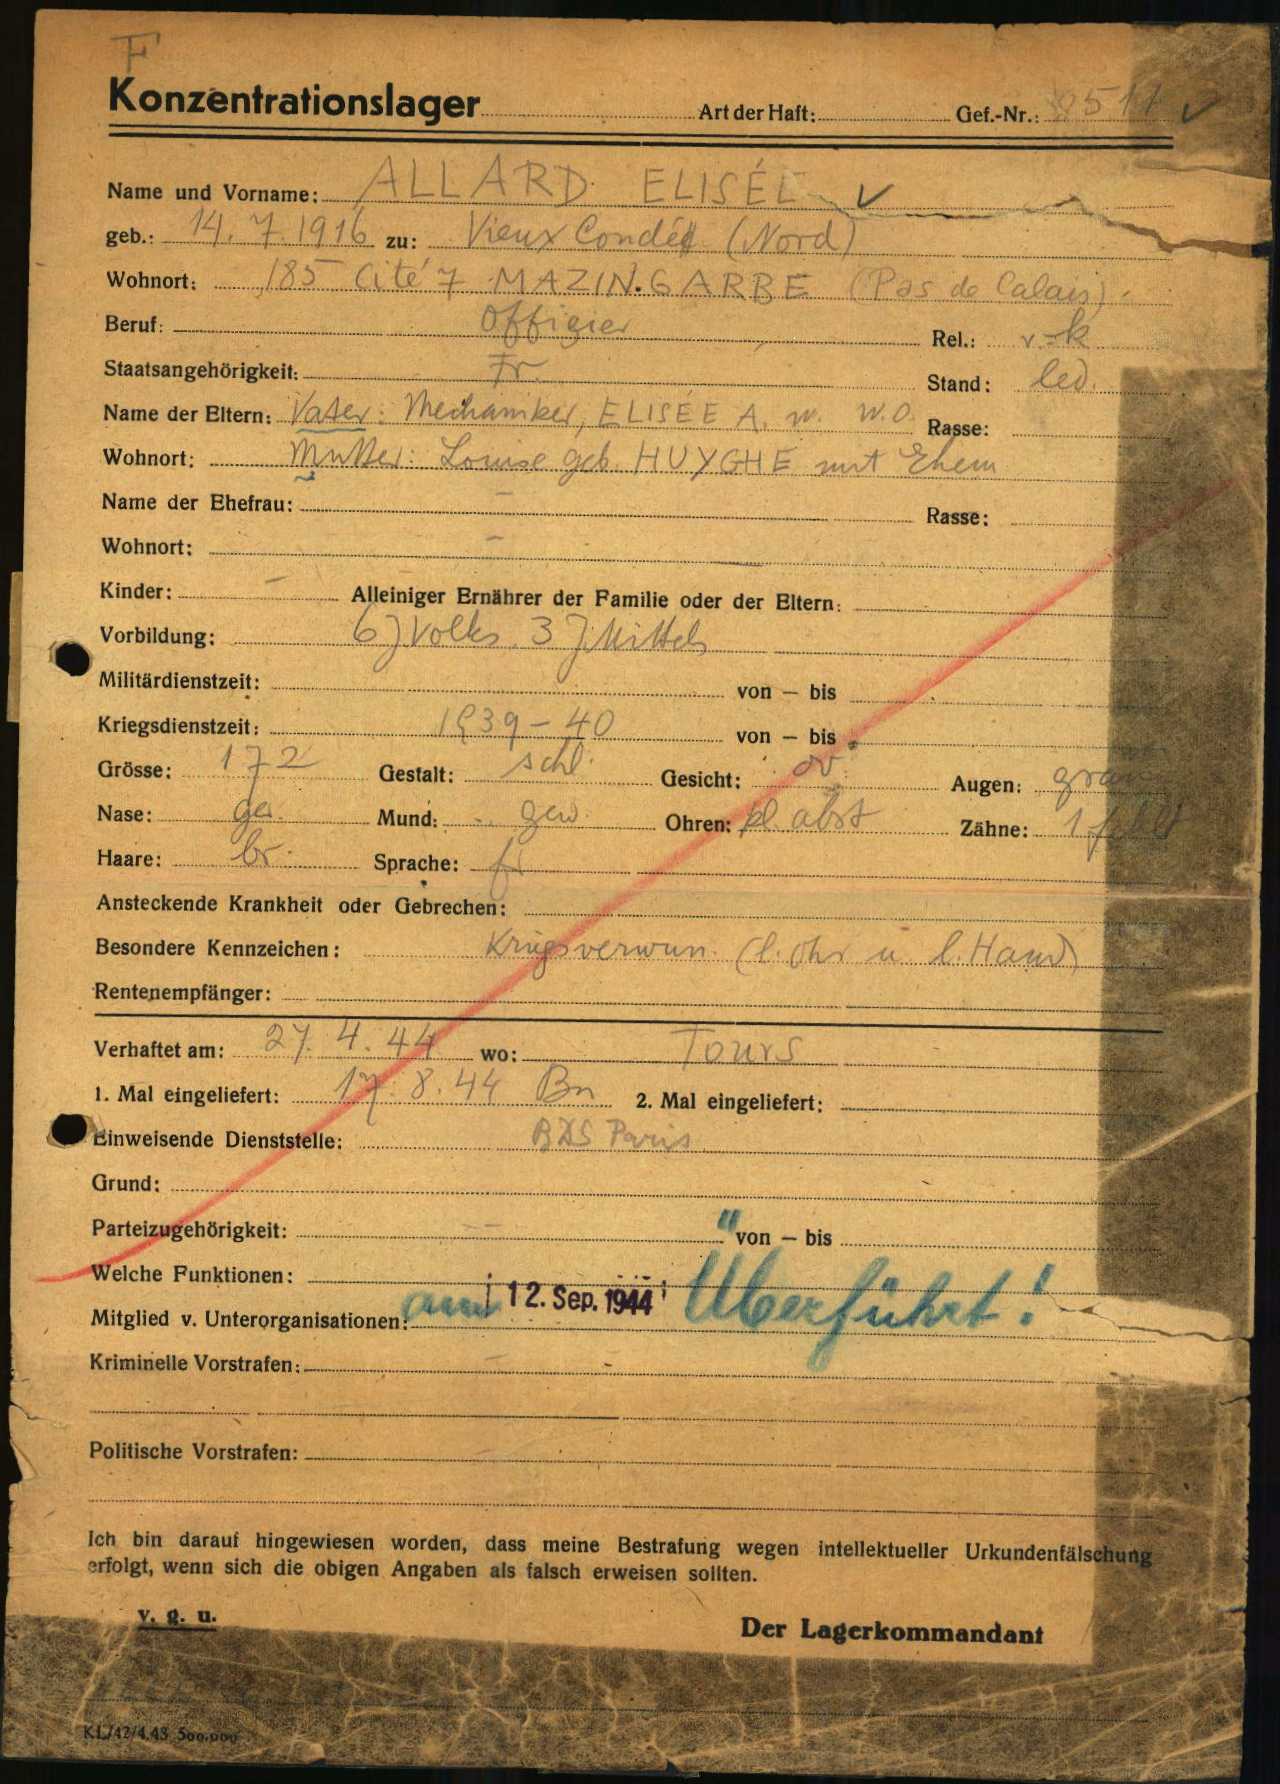 F
Konzentrationslager Art der Haft: Gef.-Nr.:
Name und Vorname: ALLARD ELISÉE
geb.: 14.7.1916 zu: Vieux Condé (Nord)
Wohnort: 185 Cité 7 MAZINGARBE (Pas de Calais).
Beruf: Offizier Rel.: r-k
Staatsangehörigkeit: Fr. Stand: led.
Name der Eltern: Vater: Mechaniker, ELISÉE A. w. W.O. Rasse:
Wohnort: Mutter: Louise geb. HUYGHE mit Ehem
Name der Ehefrau: - Rasse:
Wohnort: -
Kinder: - Alleiniger Ernährer der Familie oder der Eltern:
Vorbildung: 6 J Volks. 3 J. Mittels
Militärdienstzeit: von — bis
Kriegsdienstzeit: 1939-40 von — bis
Grösse: 172 Gestalt: schl. Gesicht: ov. Augen: grau
Nase: ger. Mund: gew. Ohren: kl. abst Zähne: 1 fehlt
Haare: br. Sprache: fr
Ansteckende Krankheit oder Gebrechen:
Besondere Kennzeichen: Kriegsverwun. (l. Ohr u. l. Hand)
Rentenempfänger:
Verhaftet am: 27.4.44 wo: Tours
1. Mal eingeliefert: 17.8.44 Bu 2. Mal eingeliefert:
Einweisende Dienststelle: BDS Paris
Grund:
Parteizugehörigkeit: - von — bis
Welche Funktionen:
Mitglied v. Unterorganisationen: am 12. Sep. 1944 Überführt!
Kriminelle Vorstrafen: -
Politische Vorstrafen: -
Ich bin darauf hingewiesen worden, dass meine Bestrafung wegen intellektueller Urkundenfälschung
erfolgt, wenn sich die obigen Angaben als falsch erweisen sollten.
v. g. u. Der Lagerkommandant
KL/42/4.43 500.000